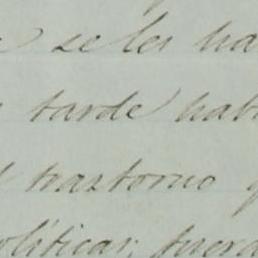 se les ha
tarde hab
trastorno
olíticas, fuera